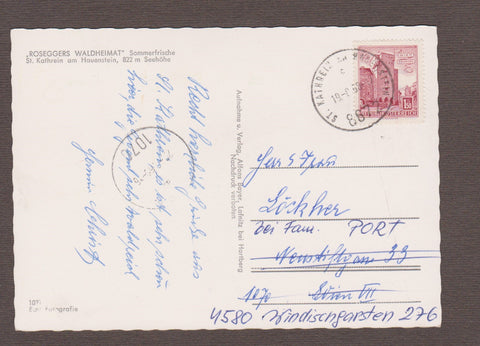 „ROSEGGERS WALDHEIMAT" Sommerfrische
St. Kathrein am Hauenstein, 822 m Seehöhe
Recht herzliche Grüße aus
St. Kathrein. Es ist sehr schön
hier, die Gegend sehr waldreich
Aufnahme u. Verlag, Alfons Bayer, Lafnitz bei Hartberg
Nachdruck verboten
ST. KATHREIN AM HAUENSTEIN
887
107
1.50
REPUBLIK ÖSTERREICH
Herr & Frau
Löckher
bei Fam. PORT
Neustiftgasse 33
1070 Wien VII
4580 Windischgarsten 276